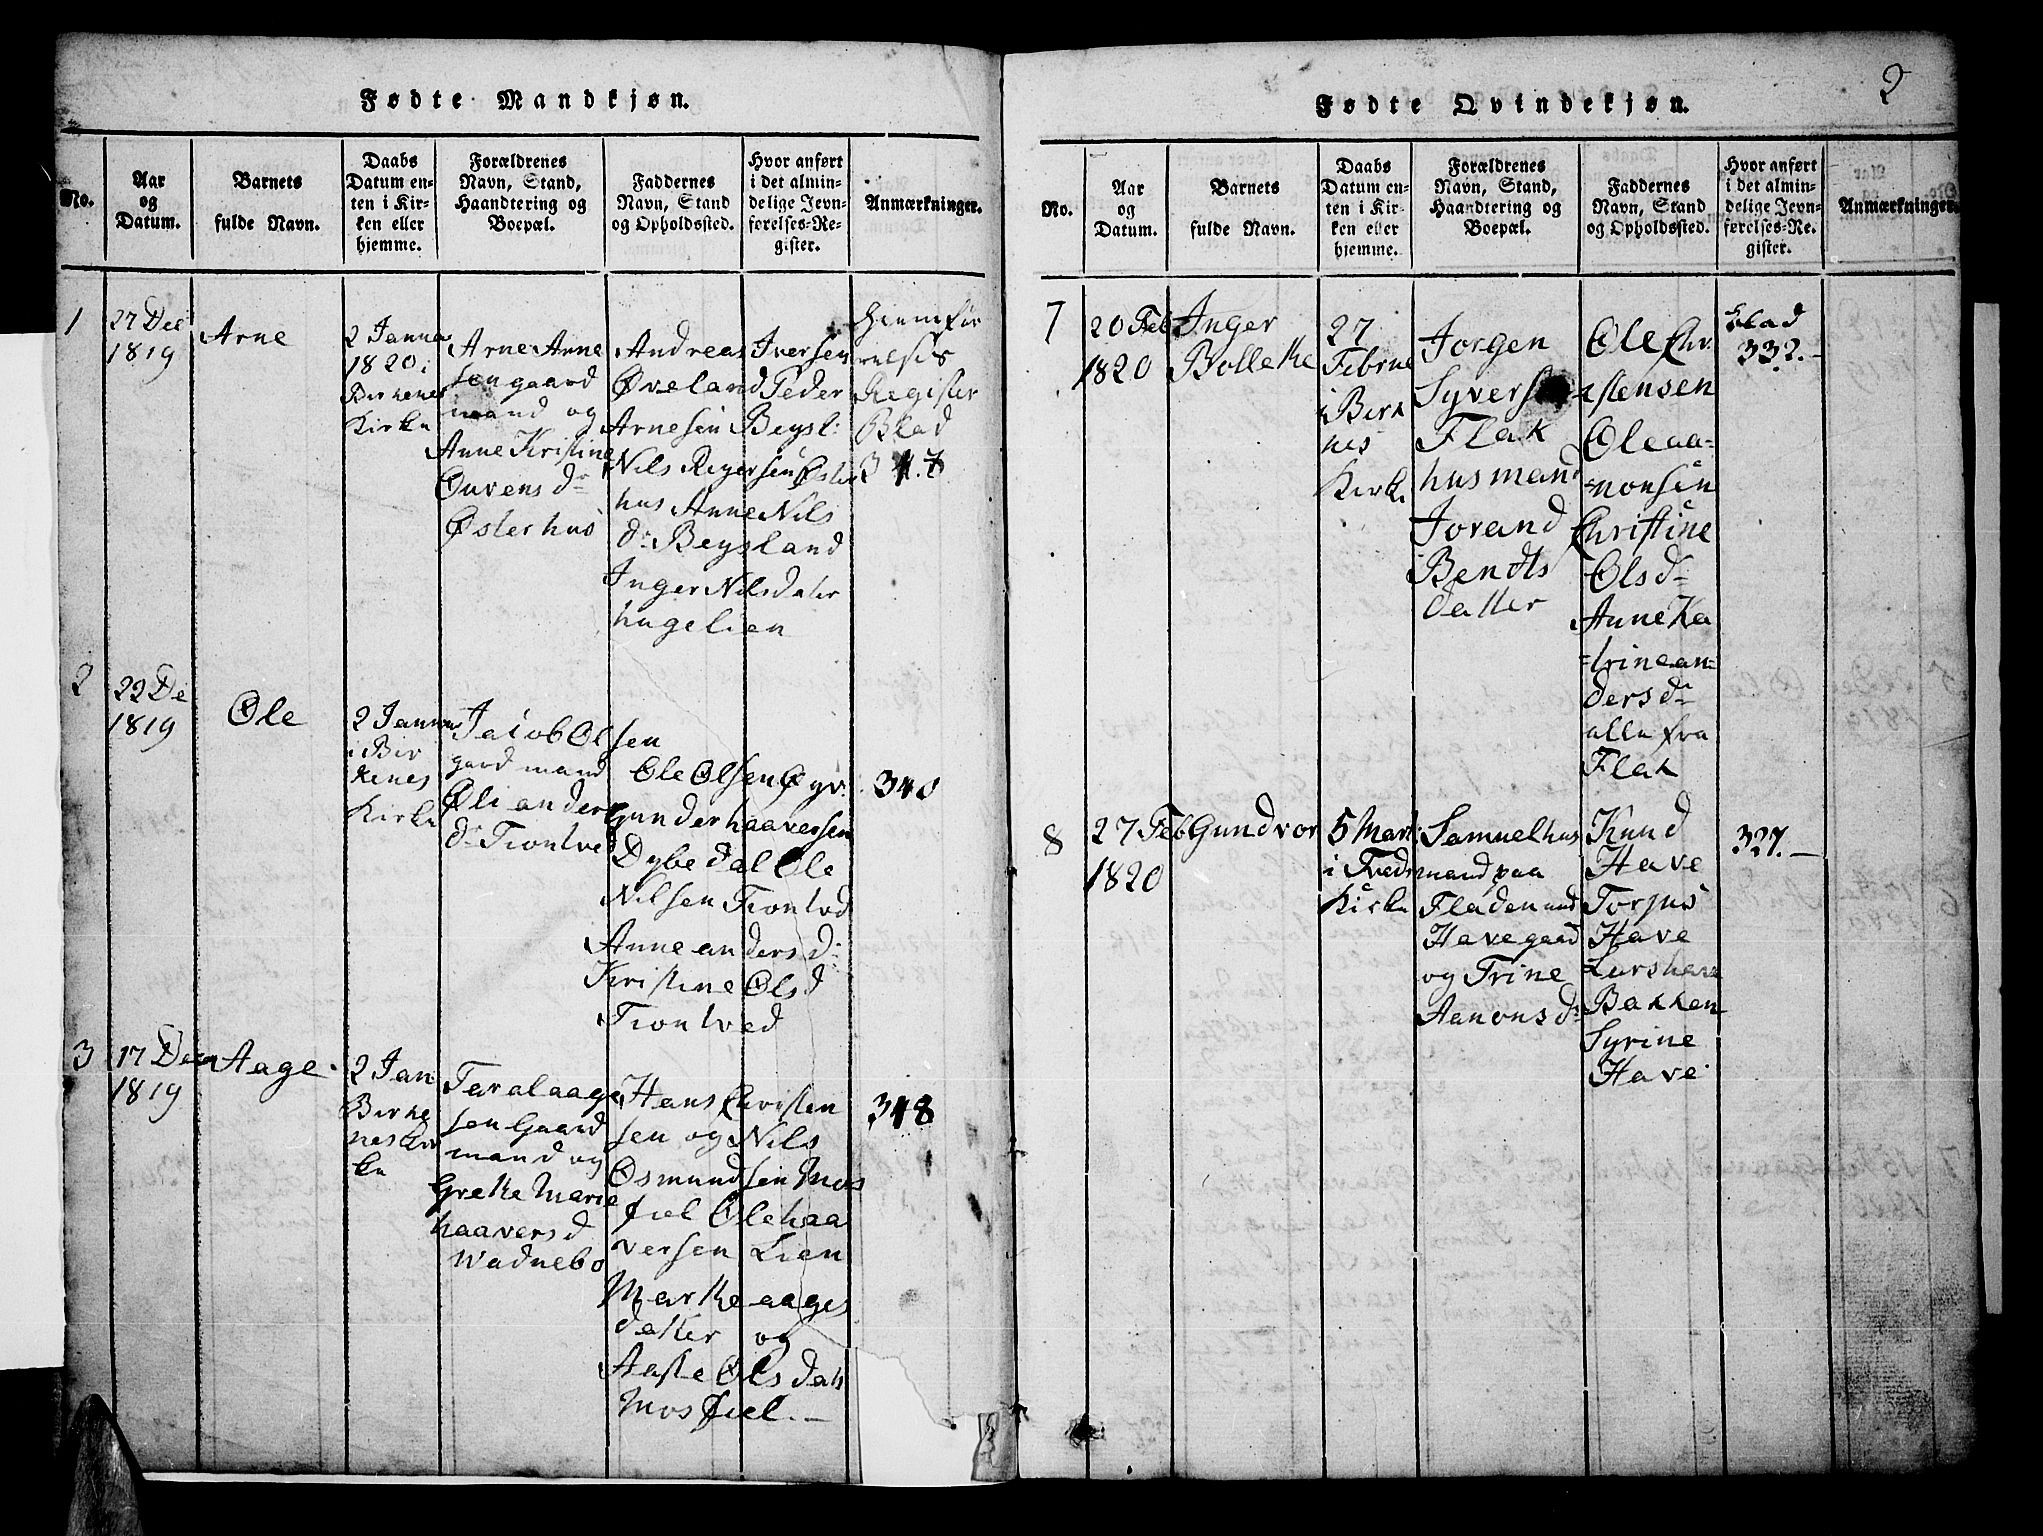 Fødte Mandkjøn.
No.
Aar
og
Datum.
Barnets
fulde Navn.
Daabs
Datum en-
ten i Kir-
ken eller
hjemme.
Forældrenes
Navn, Stand,
Haandtering og
Boepæl.
Faddernes
Navn, Stand
og Opholdssted.
Hvor anført
i det almin-
delige Jevn-
førelses-Re-
gister.
Anmærkninger.
1
27 Dec
1819
Arne
2 Janua
1820 i
Birkenes
Kirke
Arne Arne
sen gaard
mand og
Anne Kristine
Ouvens dr
Østerhus
Andreas Iversen
Øveland Peder
Arnesen Beysl:
Nils Reyersen Øster
hus Anne Nils
dr Beysland
Inger Nilsdater
hugelien
Hiemfør
relses
Register
Blad
347
2
22 De
1819
Ole
2 Januar
i Bir
kenes
Kirke
Jacob Olsen
gard mand
Øli anders
dr Tiontved
Ole Olsen
Gunder haaversen
Dybedal Ole
Nilsen Tiontved
Anne anders d:
Kristine Ols d
Tiontved
340
3
17 Decem
1819
Aage
2 Jan
Birke
nes Kir
ke
Taral aage
sen Gaard
mand og
Grethe Marie
haavers d
Wadnebo
Hans Christen
sen og Nils
Osmundsen Mos
fiel Ole haa
versen Lien
Marthe aages
datter og
Aaste Ols datt
Mosfiel. —
348
2
Fødte Qvindekjøn.
No.
Aar
og
Datum.
Barnets
fulde Navn.
Daabs
Datum en-
ten i Kir-
ken eller
hjemme.
Forældrenes
Navn, Stand,
Haandtering og
Boepæl.
Faddernes
Navn, Stand
og Opholdssted.
Hvor anført
i det almin-
delige Jevn-
førelses-Re-
gister.
Anmærkninger.
7
20 Feb
1820
Inger
Bollethe
27
Februe
i Birk
nes
Kirke
Jorgen
Syversen
Flak
husmand
Jorand
Bendts
datter
Ole Chr:
istensen
Ole aa=
=nonsen
Christine
Olsdr
Anne Ka
=trine an=
ders dr
alle fra
Flak
blad
332.–
8
27 Feb
1820
Gundvor
5 Mart
i Tveds
Kirke
Samuel hus
mand paa
Fladen und
Have gaard
og Trine
Aanons dr
Knud
Have
Torjus
Have
Lars have
Bakken
Syrine
Have
327.—